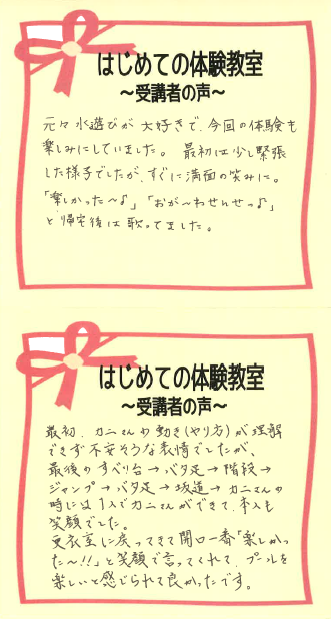 はじめての体験教室
～受講者の声～
元々水遊びが大好きで、今回の体験も
楽しみにしていました。最初は少し緊張
した様子でしたが、すぐに満面の笑みに。
「楽しかった～♪」「おが～わせんせっ♪」
と帰宅後は歌ってました。
はじめての体験教室
～受講者の声～
最初、カニさんの動き(やり方)が理解
できず不安そうな表情でしたが、
最後のすべり台→バタ足→階段→
ジャンプ→バタ足→坂道→カニさんの
時には1人でカニさんができて、本人も
笑顔でした。
更衣室に戻ってきて開口一番「楽しかっ
た～!!」と笑顔で言ってくれて、プールを
楽しいと感じられて良かったです。